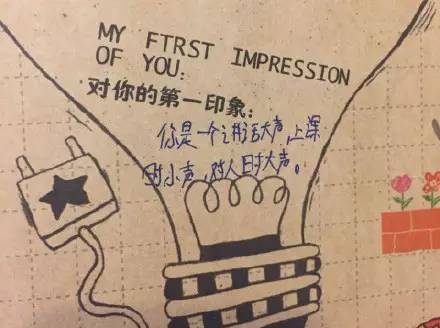 MY FTRST IMPRESSION
OF YOU:
对你的第一印象：
你是一个讲话大声，上课
时小声，对人时大声。